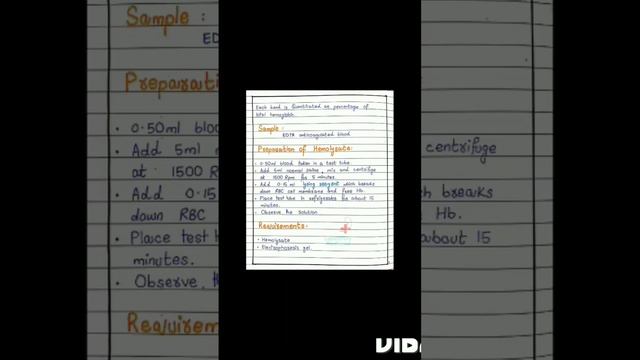 Each band is Quantitated as percentage of
total hemoglobin.
Sample :
EDTA anticoagulated blood
Preparation of Hemolysate:
• 0.50ml blood taken in a test tube
• Add 5ml normal saline, mix and centrifuge
at 1500 Rpm for 5 minutes.
• Add 0.15 ml lysing reagent which breaks
down RBC cell membrane and free Hb.
• Place test tube in refrigerator for about 15
minutes.
• Observe the solution
Requirements:
• Hemolysate
• Electrophoresis gel.
Sample :
ED
Preparati
• 0.50ml bloo
• Add 5ml
at 1500 R
• Add 0.15
down RBC
• Place test
minutes.
• Observe
Requirem
centrifuge
breaks
Hb.
about 15